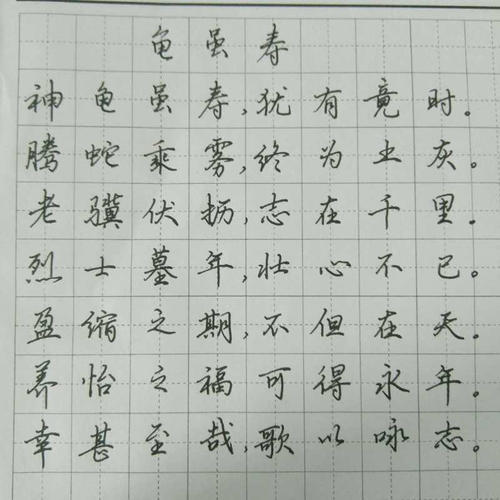 龟虽寿
神龟虽寿,犹有竟时。
腾蛇乘雾,终为土灰。
老骥伏枥,志在千里。
烈士墓年,壮心不已。
盈缩之期,不但在天。
养怡之福可得永年。
幸甚至哉,歌以咏志。